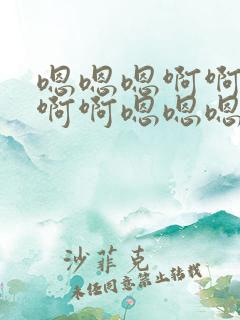 嗯嗯嗯啊啊
啊啊嗯嗯嗯
沙菲克
未经同意禁止转载